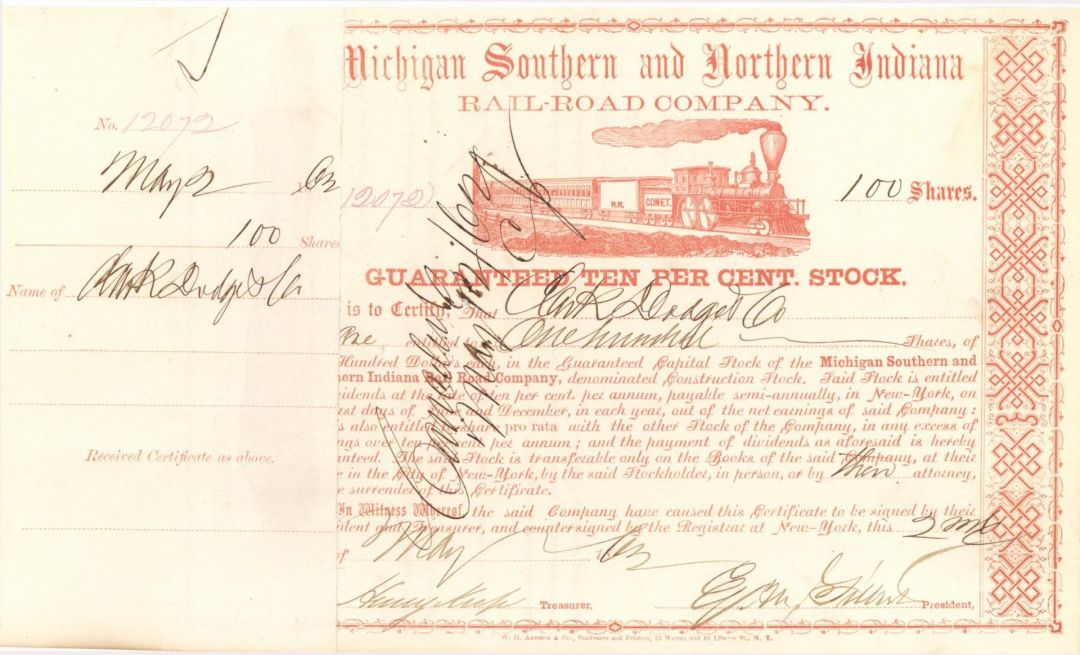 No. 12072
May 2 63
100 Share
Name of Clark Dodge & Co
Received Certificate as above.
Michigan Southern and Northern Indiana
RAIL-ROAD COMPANY.
12072)
R.R. COMET.
100 Shares.
GUARANTEED TEN PER CENT. STOCK.
is to Certify, That Clark Dodge & Co
One hundred Shares, of
Hundred Dollars each in the Guaranteed Capital Stock of the Michigan Southern and
ern Indiana Rail Road Company, denominated Construction Stock. Said Stock is entitled
idends at the rate of ten per cent. per annum, payable semi-annually, in New-York, on
st days of June and December, in each year, out of the net earnings of said Company:
s also entitled to share pro rata with the other Stock of the Company, in any excess of
ngs over ten per cent per annum; and the payment of dividends as aforesaid is hereby
nteed. The said Stock is transferable only on the Books of the said Company, at their
e in the City of New-York, by the said Stockholder, in person, or by their attorney,
e surrender of this Certificate.
In Witness Whereof, the said Company have caused this Certificate to be signed by their
ident and Treasurer, and countersigned by the Registrar at New-York, this 2nd
f May 63
Henry Keep Treasurer, President,
Cancelled
May